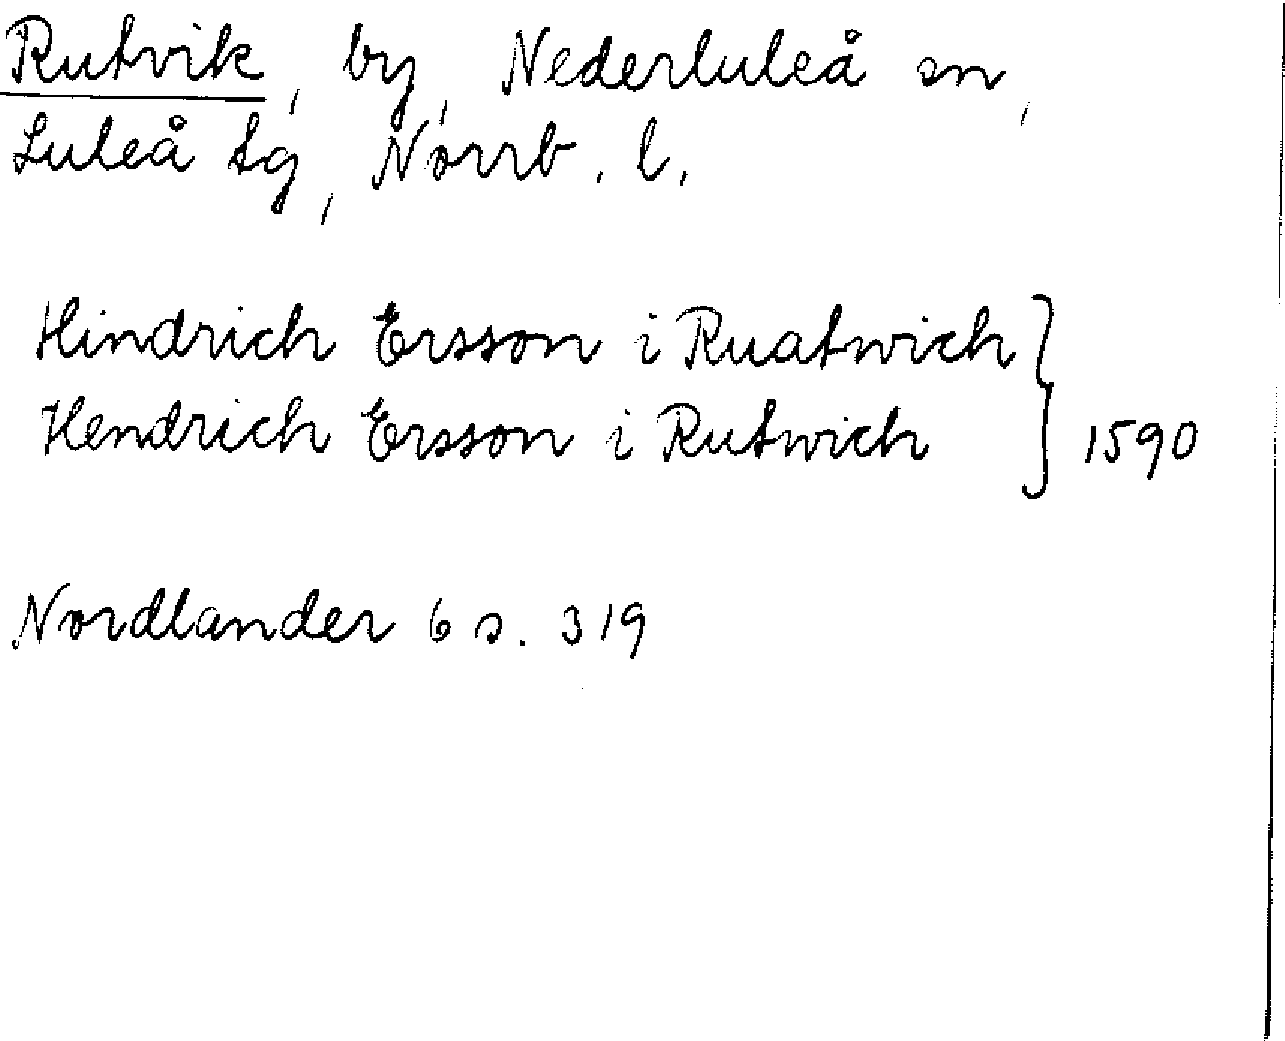 Rutvik, by, Nederluleå sn,
Luleå tg, Norrb. l.
Hindrich Ersson i Ruatwich }
Hendrich Ersson i Rutwich } 1590
Nordlander 6 s. 319